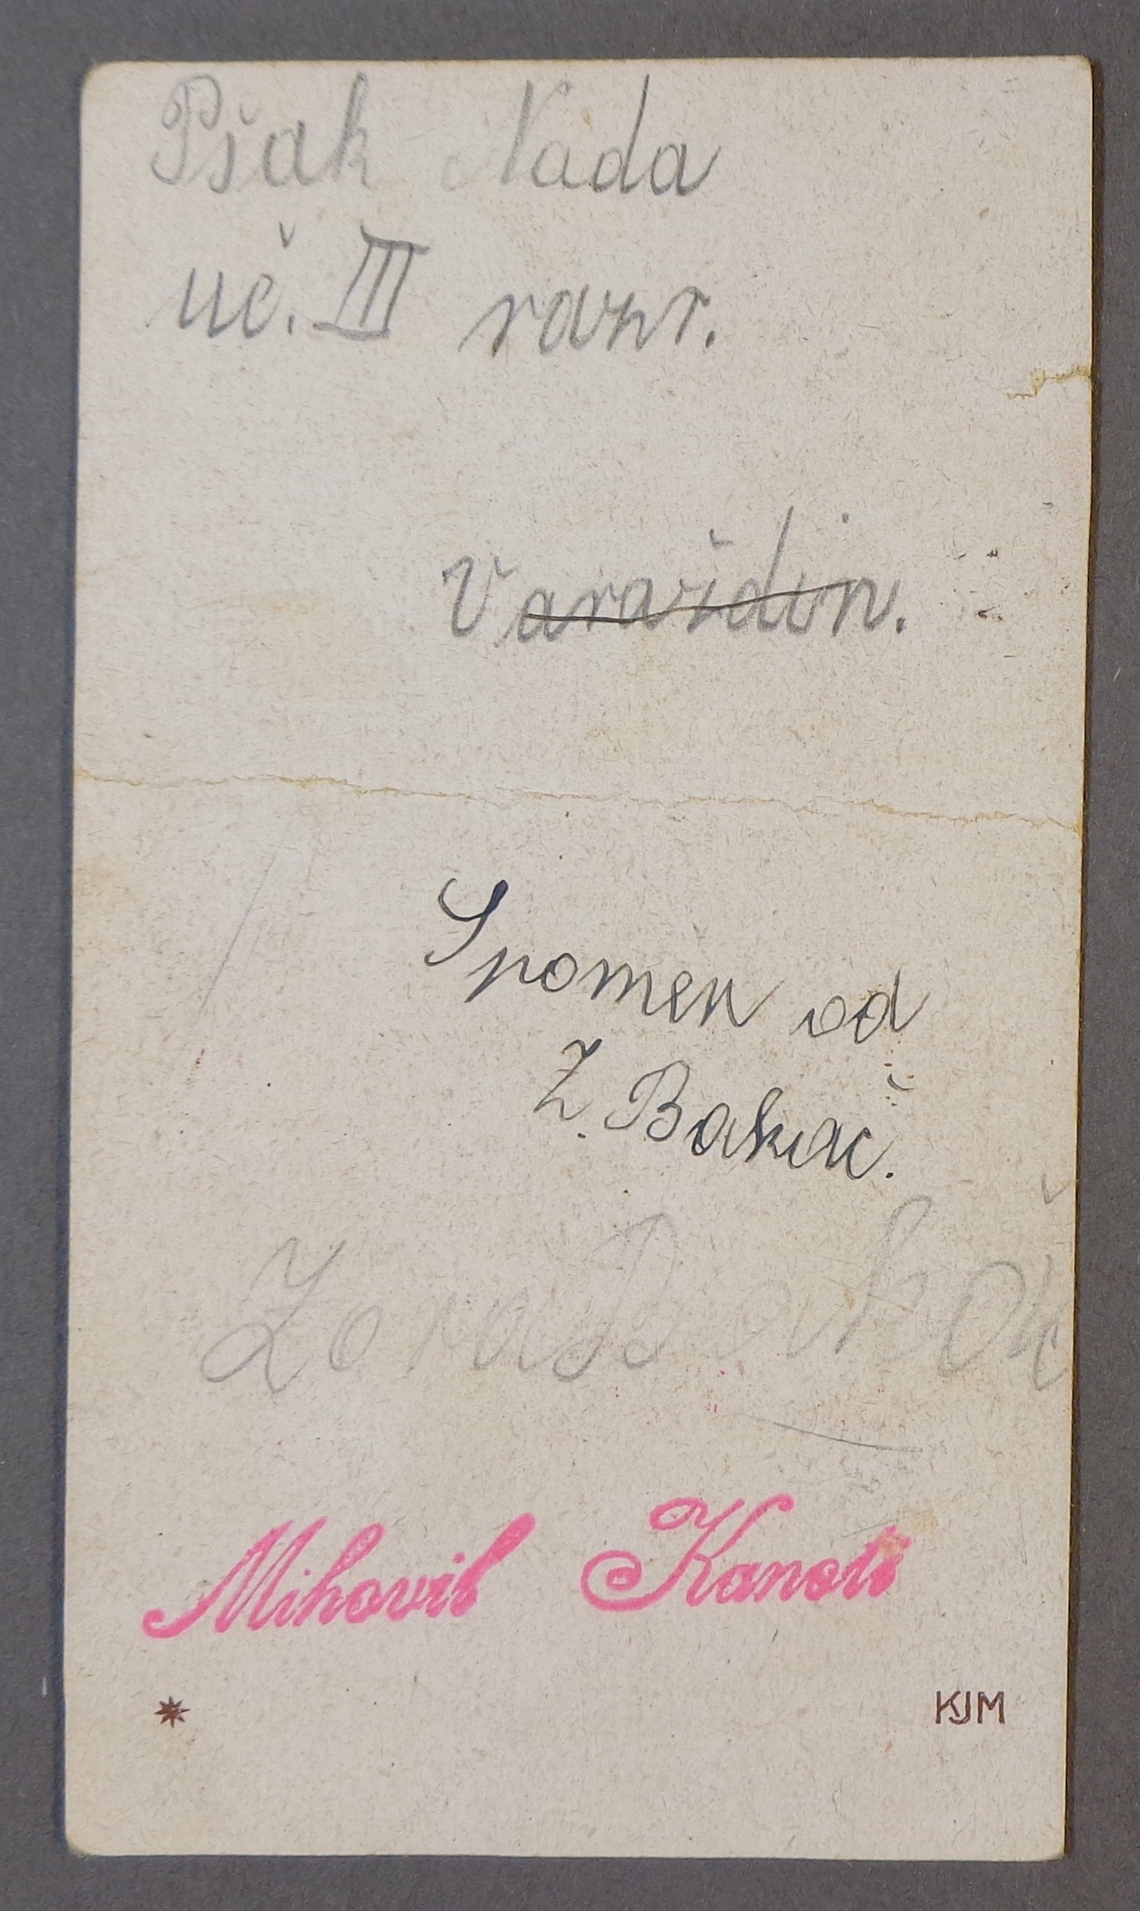 Pšak Nada
uč. III razr.
Varaždin.
Spomen od
Z. Bakač.
Zora Bakač
Mihovil Kanoti
KJM